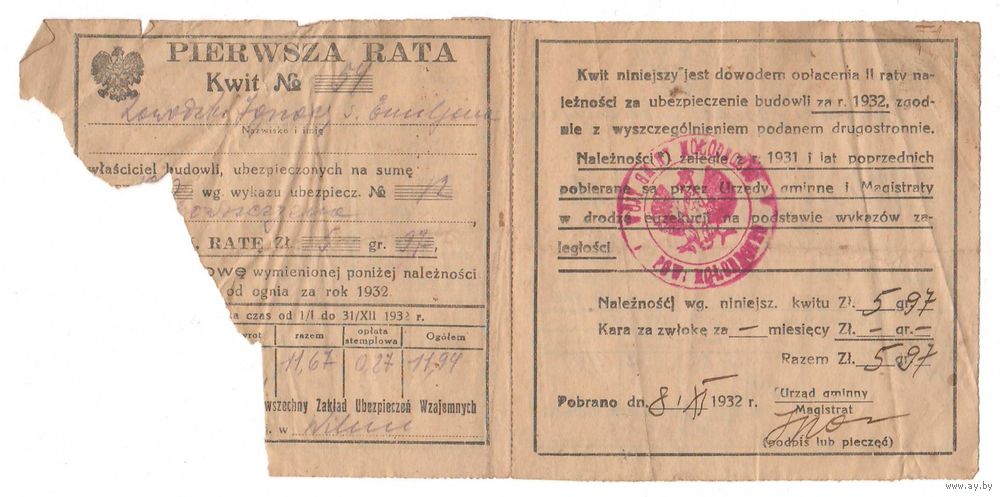 PIERWSZA RATA
Kwit № 54
Ignacy s. Emiljana
Nazwisko i imię
właściciel budowli, ubezpieczonych na sumę
wg. wykazu ubezpiecz. № 12
RATĘ Zł. 5 gr. 97,
owę wymienionej poniżej należności
od ognia za rok 1932.
a czas od 1/I do 31/XII 1932 r.
wrot razem opłata stemplowa Ogółem
11,67 0,27 11,94
wszechny Zakład Ubezpieczeń Wzajemnych
w Wilnie
Kwit niniejszy jest dowodem opłacenia II raty na-
leżności za ubezpieczenie budowli za r. 1932, zgod-
nie z wyszczególnieniem podanem drugostronnie.
Należności*) zaległe z r. 1931 i lat poprzednich
pobierane są przez Urzędy gminne i Magistraty
w drodze egzekucji na podstawie wykazów za-
ległości.
WÓJT GMINY
POW.
Należność wg. niniejsz. kwitu Zł. 5 gr. 97
Kara za zwłokę za — miesięcy Zł. — gr. —
Razem Zł. 5 gr. 97
Pobrano dn. 8 XI 1932 r.
Urząd gminny
Magistrat
(podpis lub pieczęć)
www.ay.by